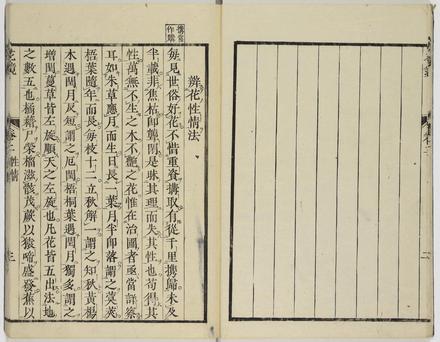 辨花性情法
每見世俗好花不惜重資搆取有從千里携歸未及
半載非焦枯卽斃則是昧其理而失其性也苟得其
性萬無不生之木不艷之花惟在治圃者亟當詳察
耳如朱草應月而生日長一葉月半卽落謂之蓂莢
梧葉隨年而長每枝十二立秋解一謂之知秋黃楊
木遇閏月反短謂之厄閏梧桐葉遇閏月獨多謂之
增閏蔓草皆左旋順天之左旋也凡花皆五出法地
之數五也橘藉尸榮榴滋骸茂蕨以猿啼盛發蕉以
花鏡 卷二 性情 三